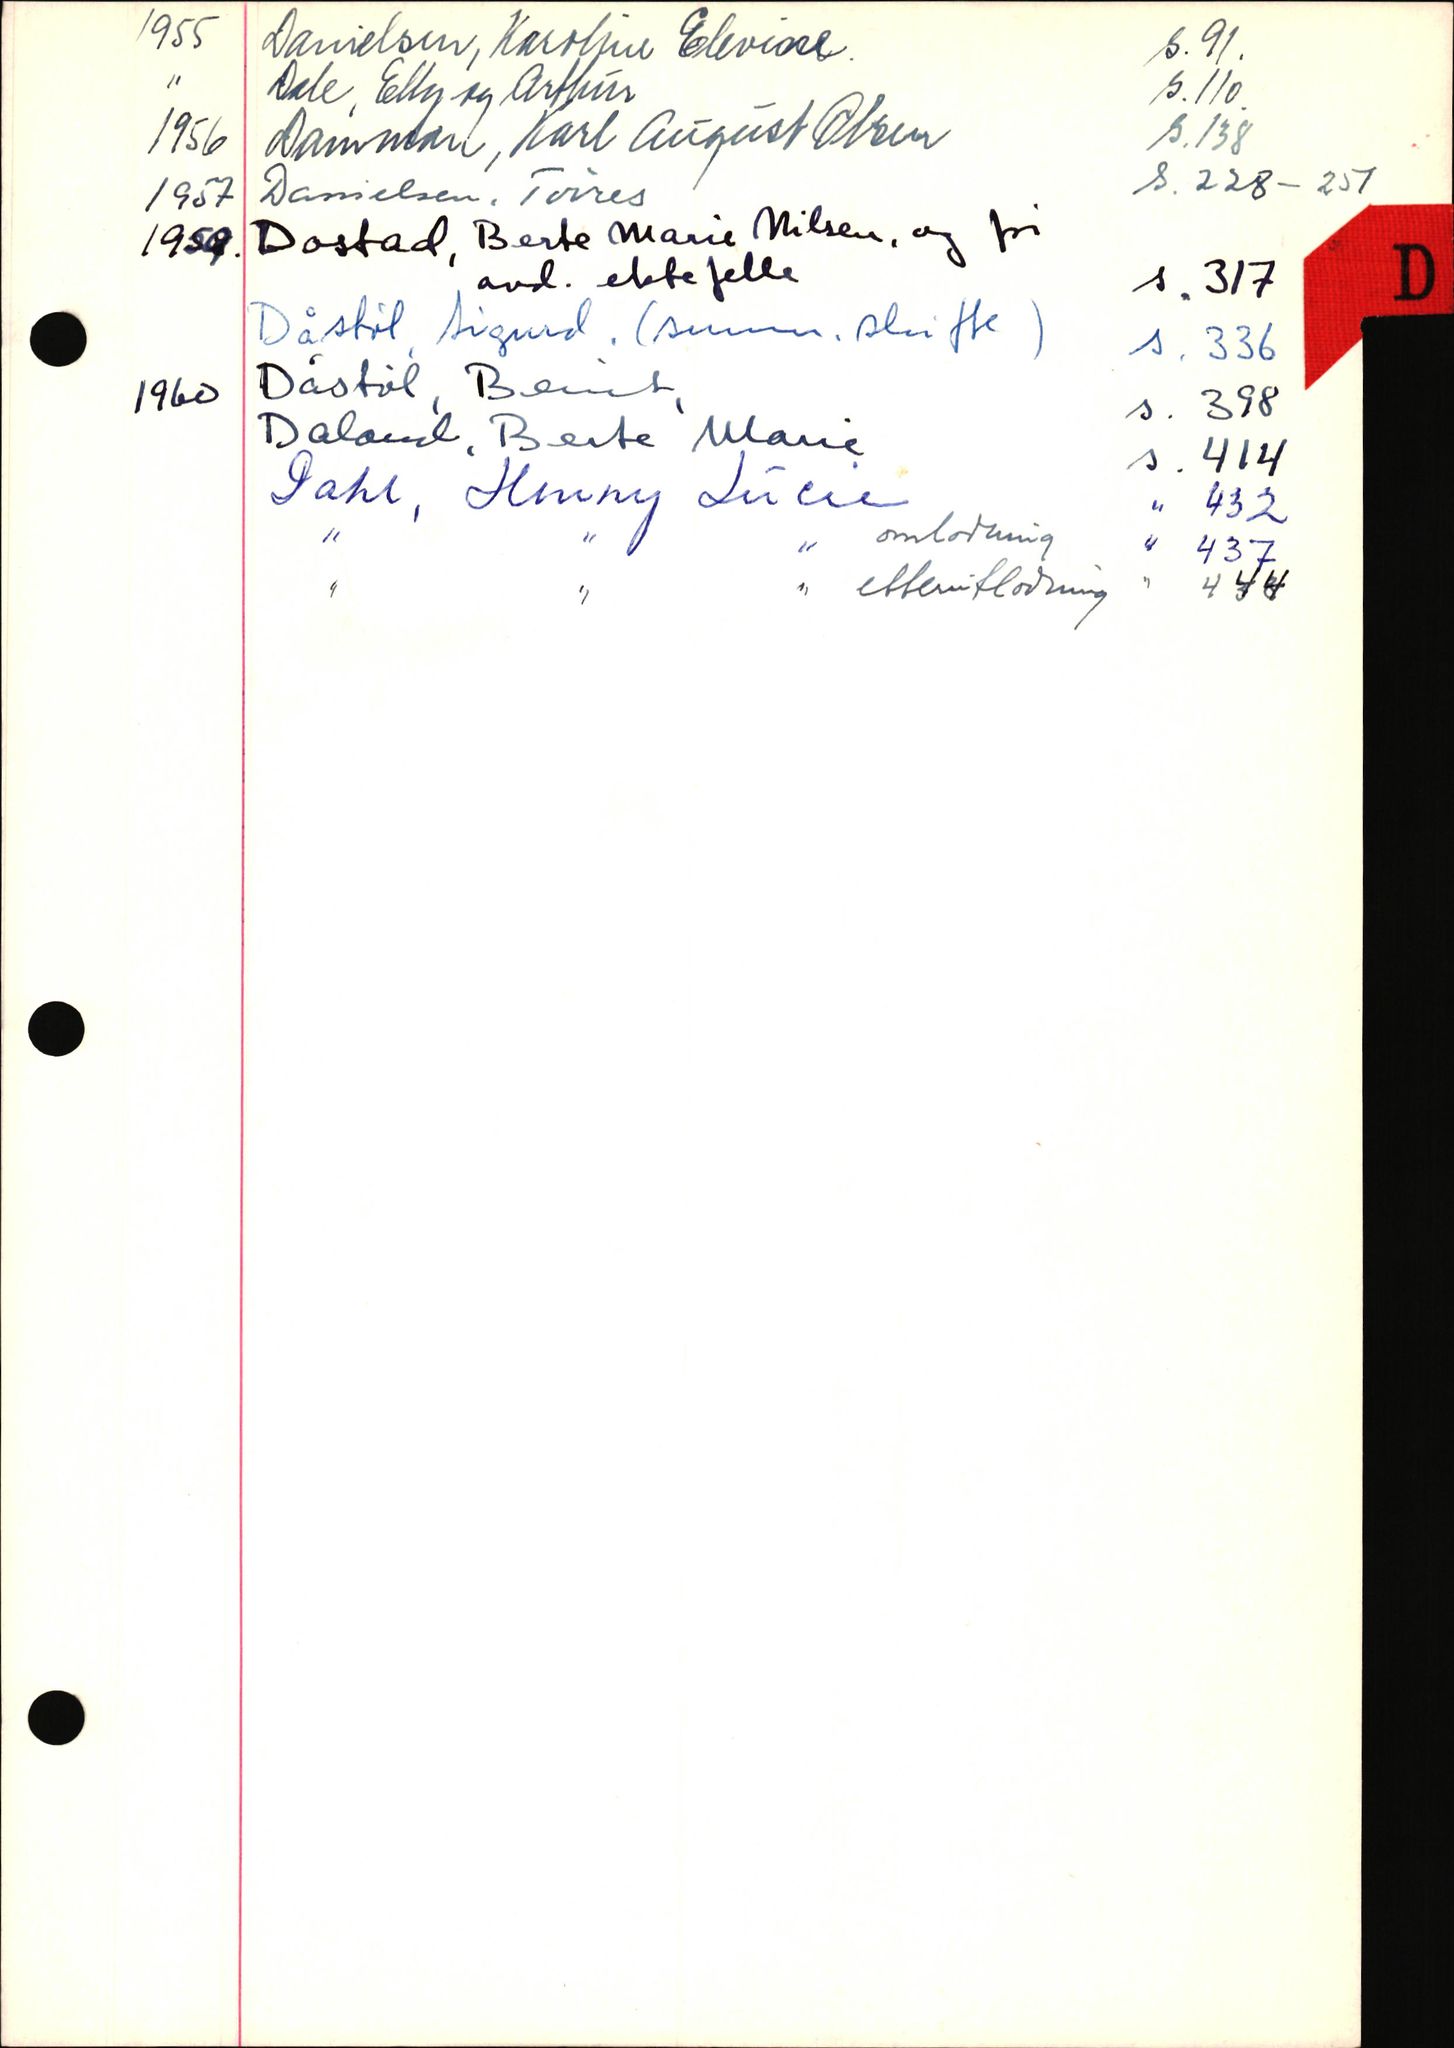 1955 Danielsen, Karoline Elevine. s. 91.
" Dale, Elly og Arthur s. 110.
1956 Damman, Karl August Olsen s. 138
1957 Danielsen, Tørres s. 228 - 251
1959. Dostad, Berte Marie Nilsen, og for
avd. ektefelle s. 317
Dåstøl, Sigurd. (summ. skifte) s. 336
1960 Dåstøl, Berit, s. 398
Daland, Berte Marie s. 414
Dahl, Henny Lucie " 432
" " " omlodning " 437
" " " etterutlodning " 444
D